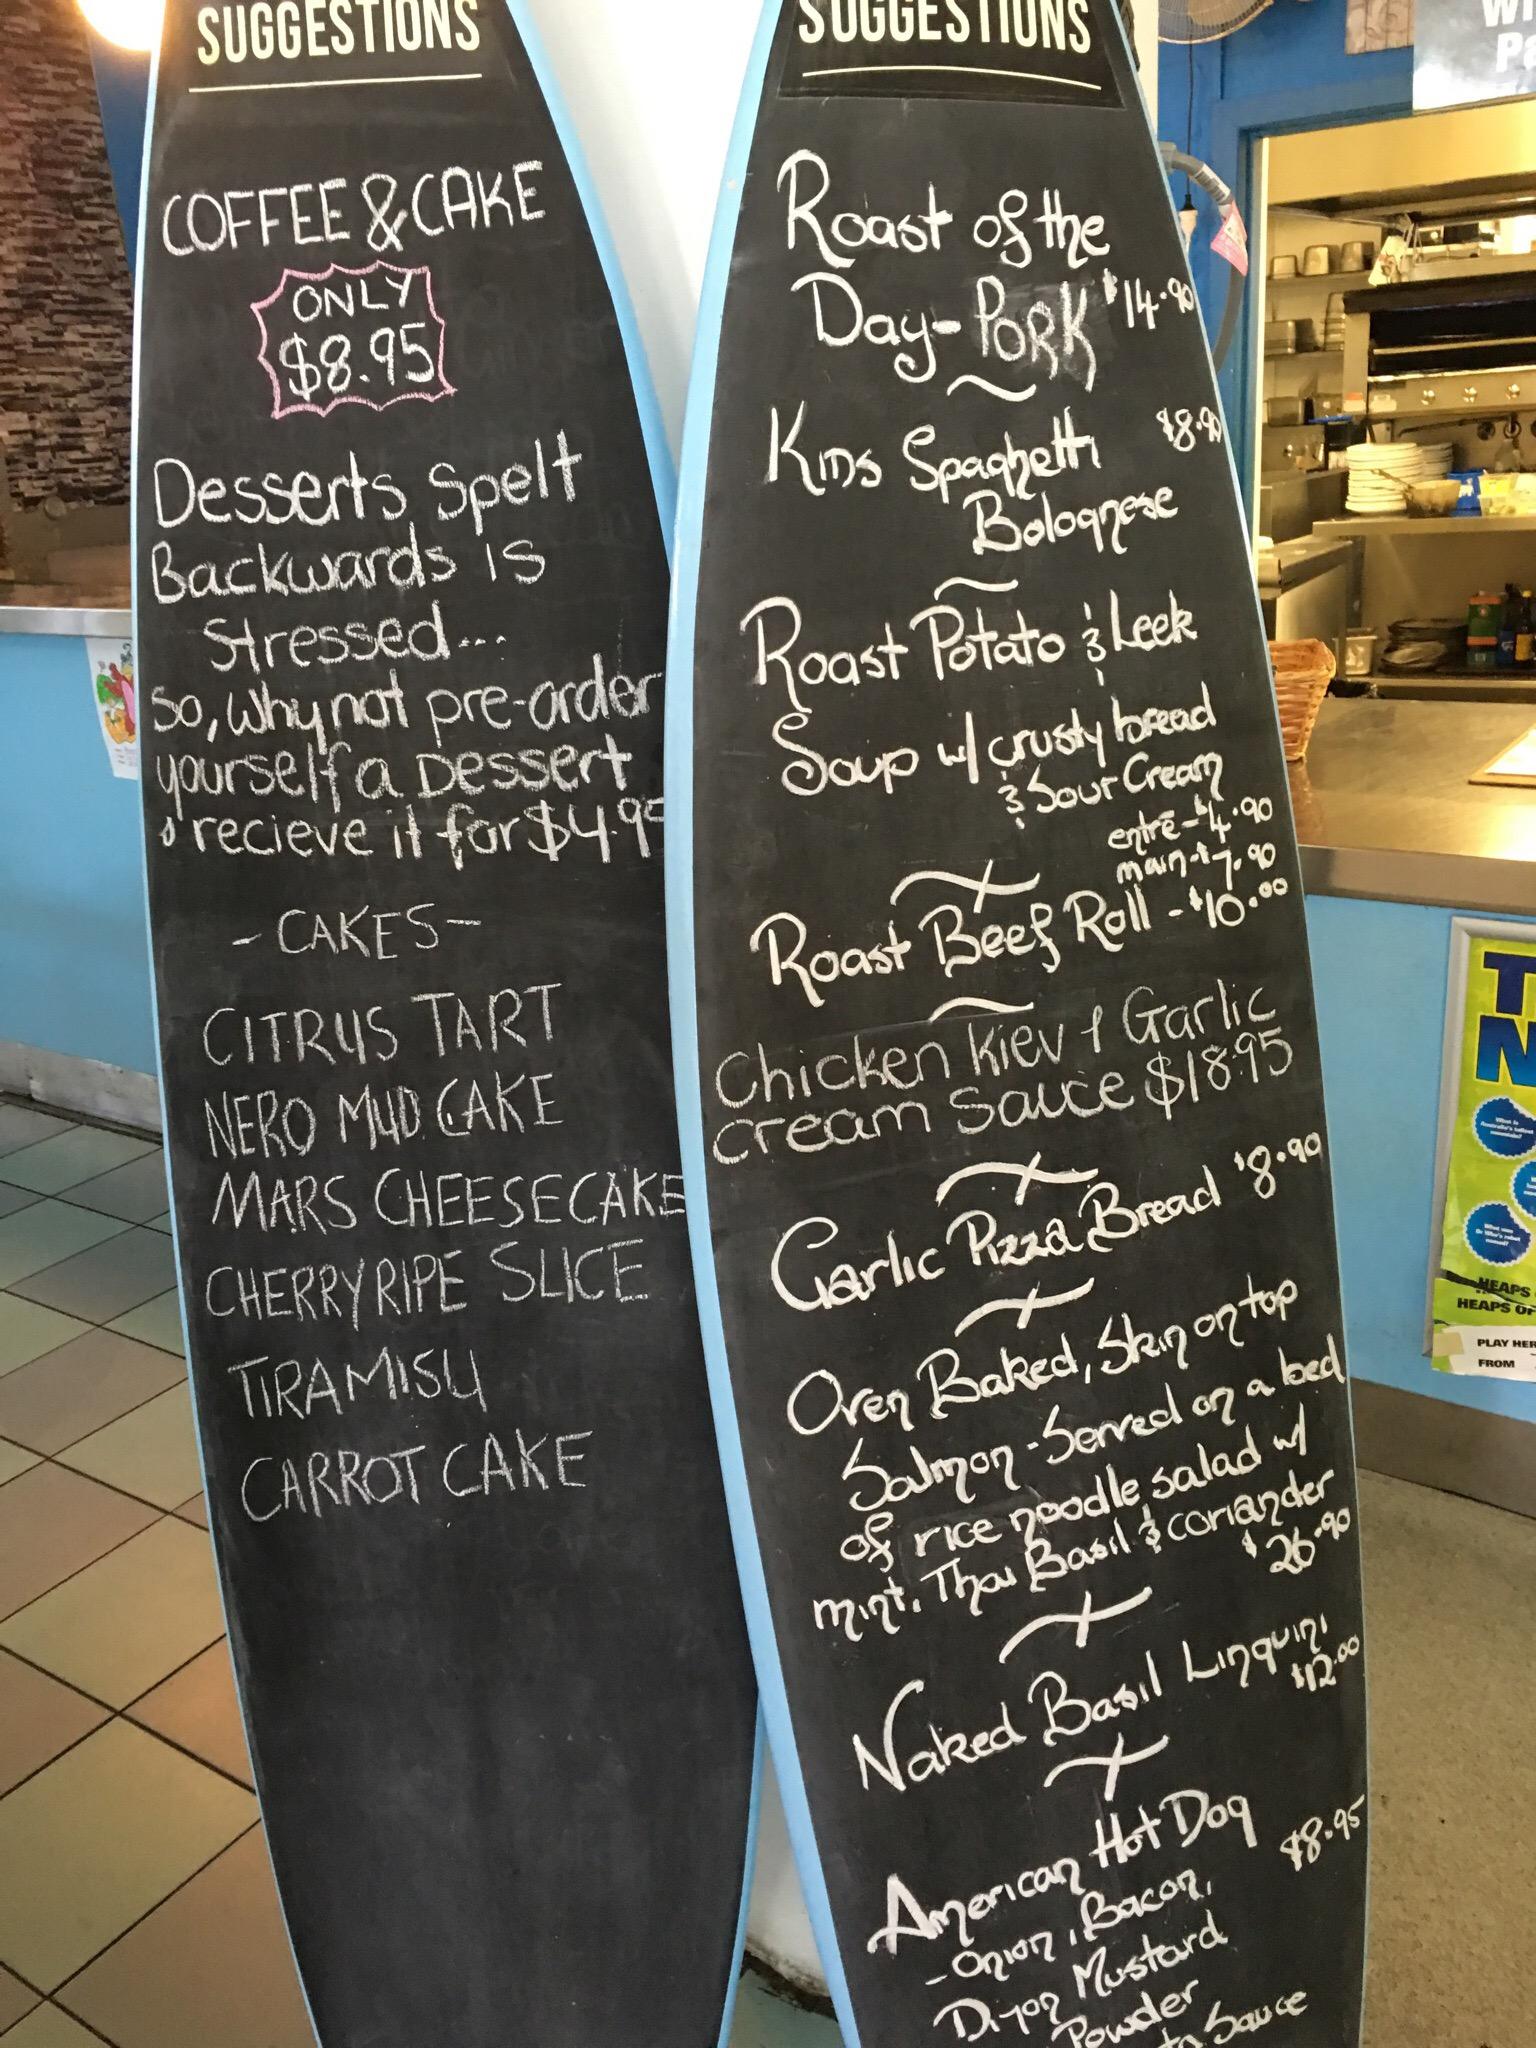 SUGGESTIONS
COFFEE & CAKE
ONLY
$8.95
Desserts Spelt
Backwards is
Stressed...
So, Why not pre-order
yourself a Dessert
& recieve it for $4.95
- CAKES -
CITRUS TART
NERO MUD CAKE
MARS CHEESECAKE
CHERRY RIPE SLICE
TIRAMISU
CARROT CAKE
SUGGESTIONS
Roast of the
Day - PORK $14.90
Kids Spaghetti $8.90
Bolognese
Roast Potato & Leek
Soup w/ crusty bread
& Sour Cream
entrē - $4.90
main - $7.90
Roast Beef Roll - $10.00
Chicken Kiev + Garlic
cream sauce $18.95
Garlic Pizza Bread $8.90
Oven Baked, Skin on top
Salmon - Served on a bed
of rice noodle salad w/
mint, Thai Basil & coriander
$26.90
Naked Basil Linguini
$12.00
American Hot Dog $8.95
- Onion, Bacon,
Dijon Mustard
Powder
Sauce
HEAPS
HEAPS OF
PLAY HER
FROM